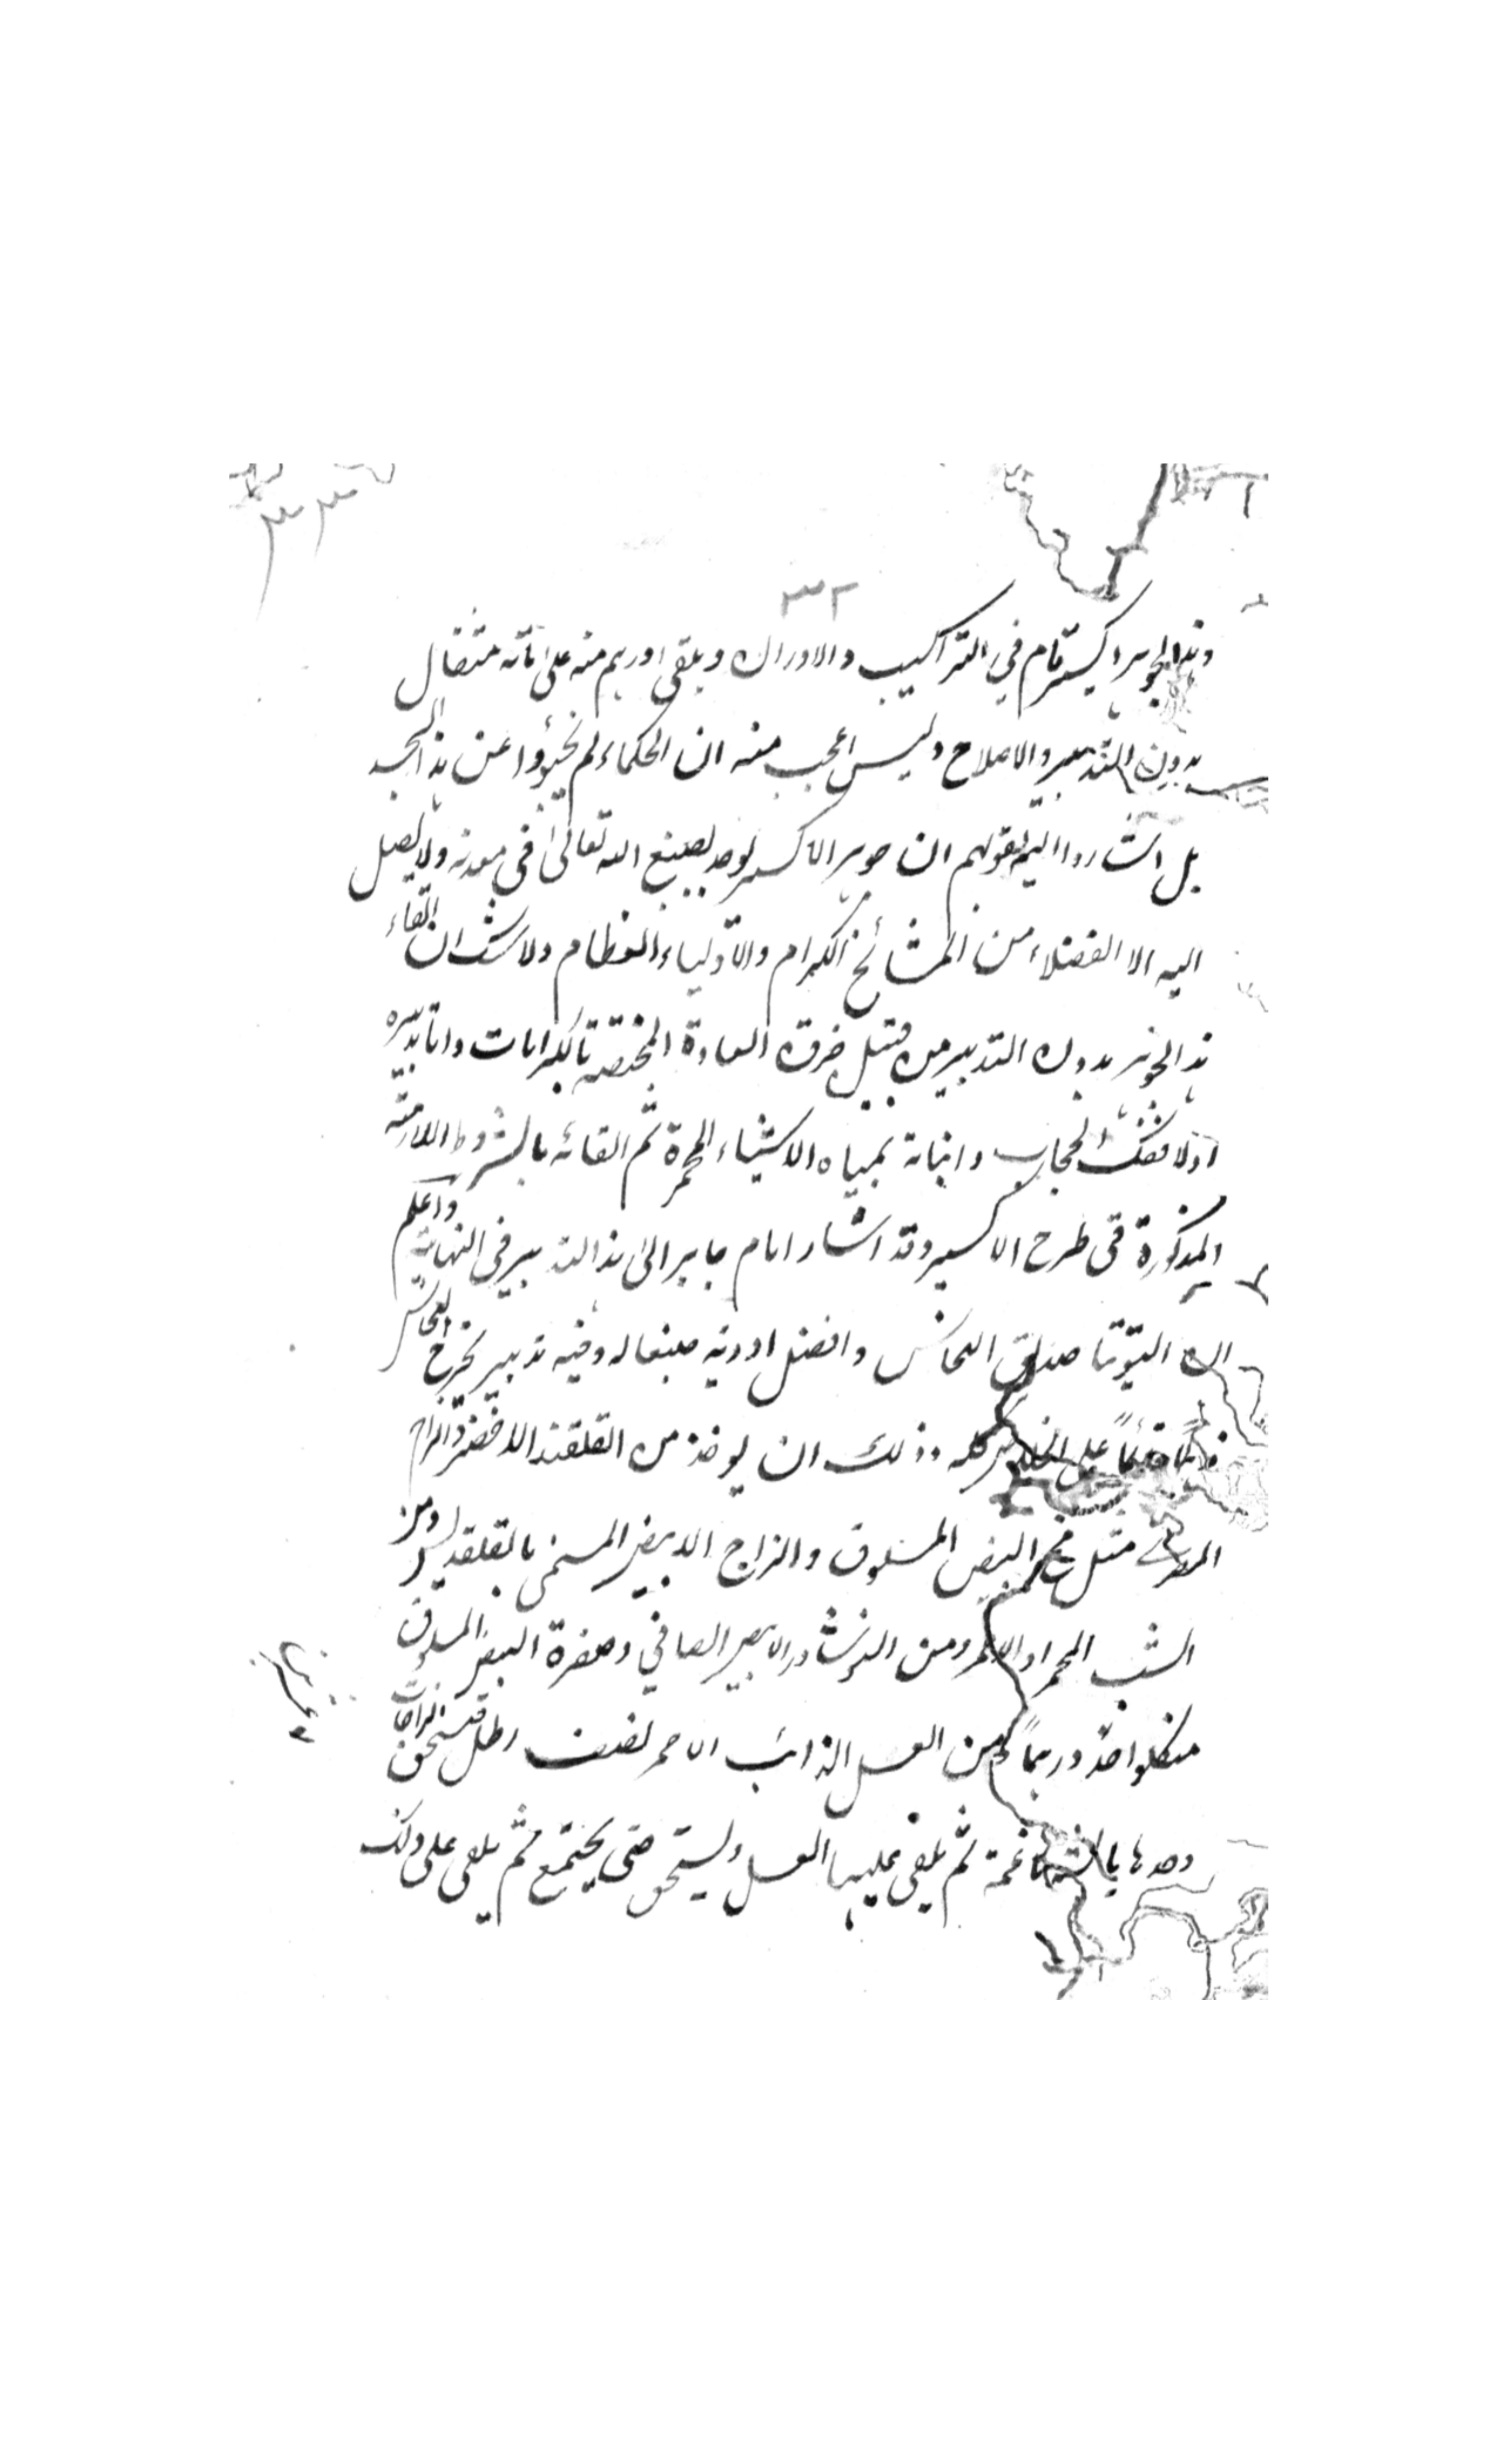 ٣٣
٣٢
وهذا الجوهر اكسير تام في التراكيب والاوزان ويلقى درهم منه على مائة مثقال
بدون التدبير والاصلاح وليس اعجب منه ان الحكماء لم يخبؤا عن هذا الجسد
بل اشاروا اليه بقولهم ان جوهر الاكسير يوجد بصنع الله تعالى في معدنه ولا يصل
اليه الا الفضلاء من المشائخ الكرام والاولياء العظام ولا شك ان القاء
هذا الجوهر بدون التدبير من قبيل خرق العادة المختصة بالكرامات واما تدبيره
اولا فكفك الحجاب وانبانه بمياه الاشياء المحمرة ثم القائه بالشروط اللازمة
المذكورة في طرح الاكسير وقد اشار امام جابر الى هذا التدبير في النهاية واعلم
ان التوتيا صديق النحاس وافضل ادوية صبغا له وفيه تدبير يخرج النحاس
قائما على كله وذلك ان يوخذ من القلقند الاخضر والزاج
المصري مثل مح البيض المسلوق والزاج الابيض المسمى بالقلقديس ومن
الشب المحمر او الاحمر ومن النوشادر الابيض الصافي وصفرة البيض المسلوق
من كل واحد درهما ومن العسل الذائب الاحمر نصف رطل فتسحق الزاجات
وحدها ناعمة ثم يلقى عليها العسل ويسحق حتى يجتمع ثم يلقى على ذلك